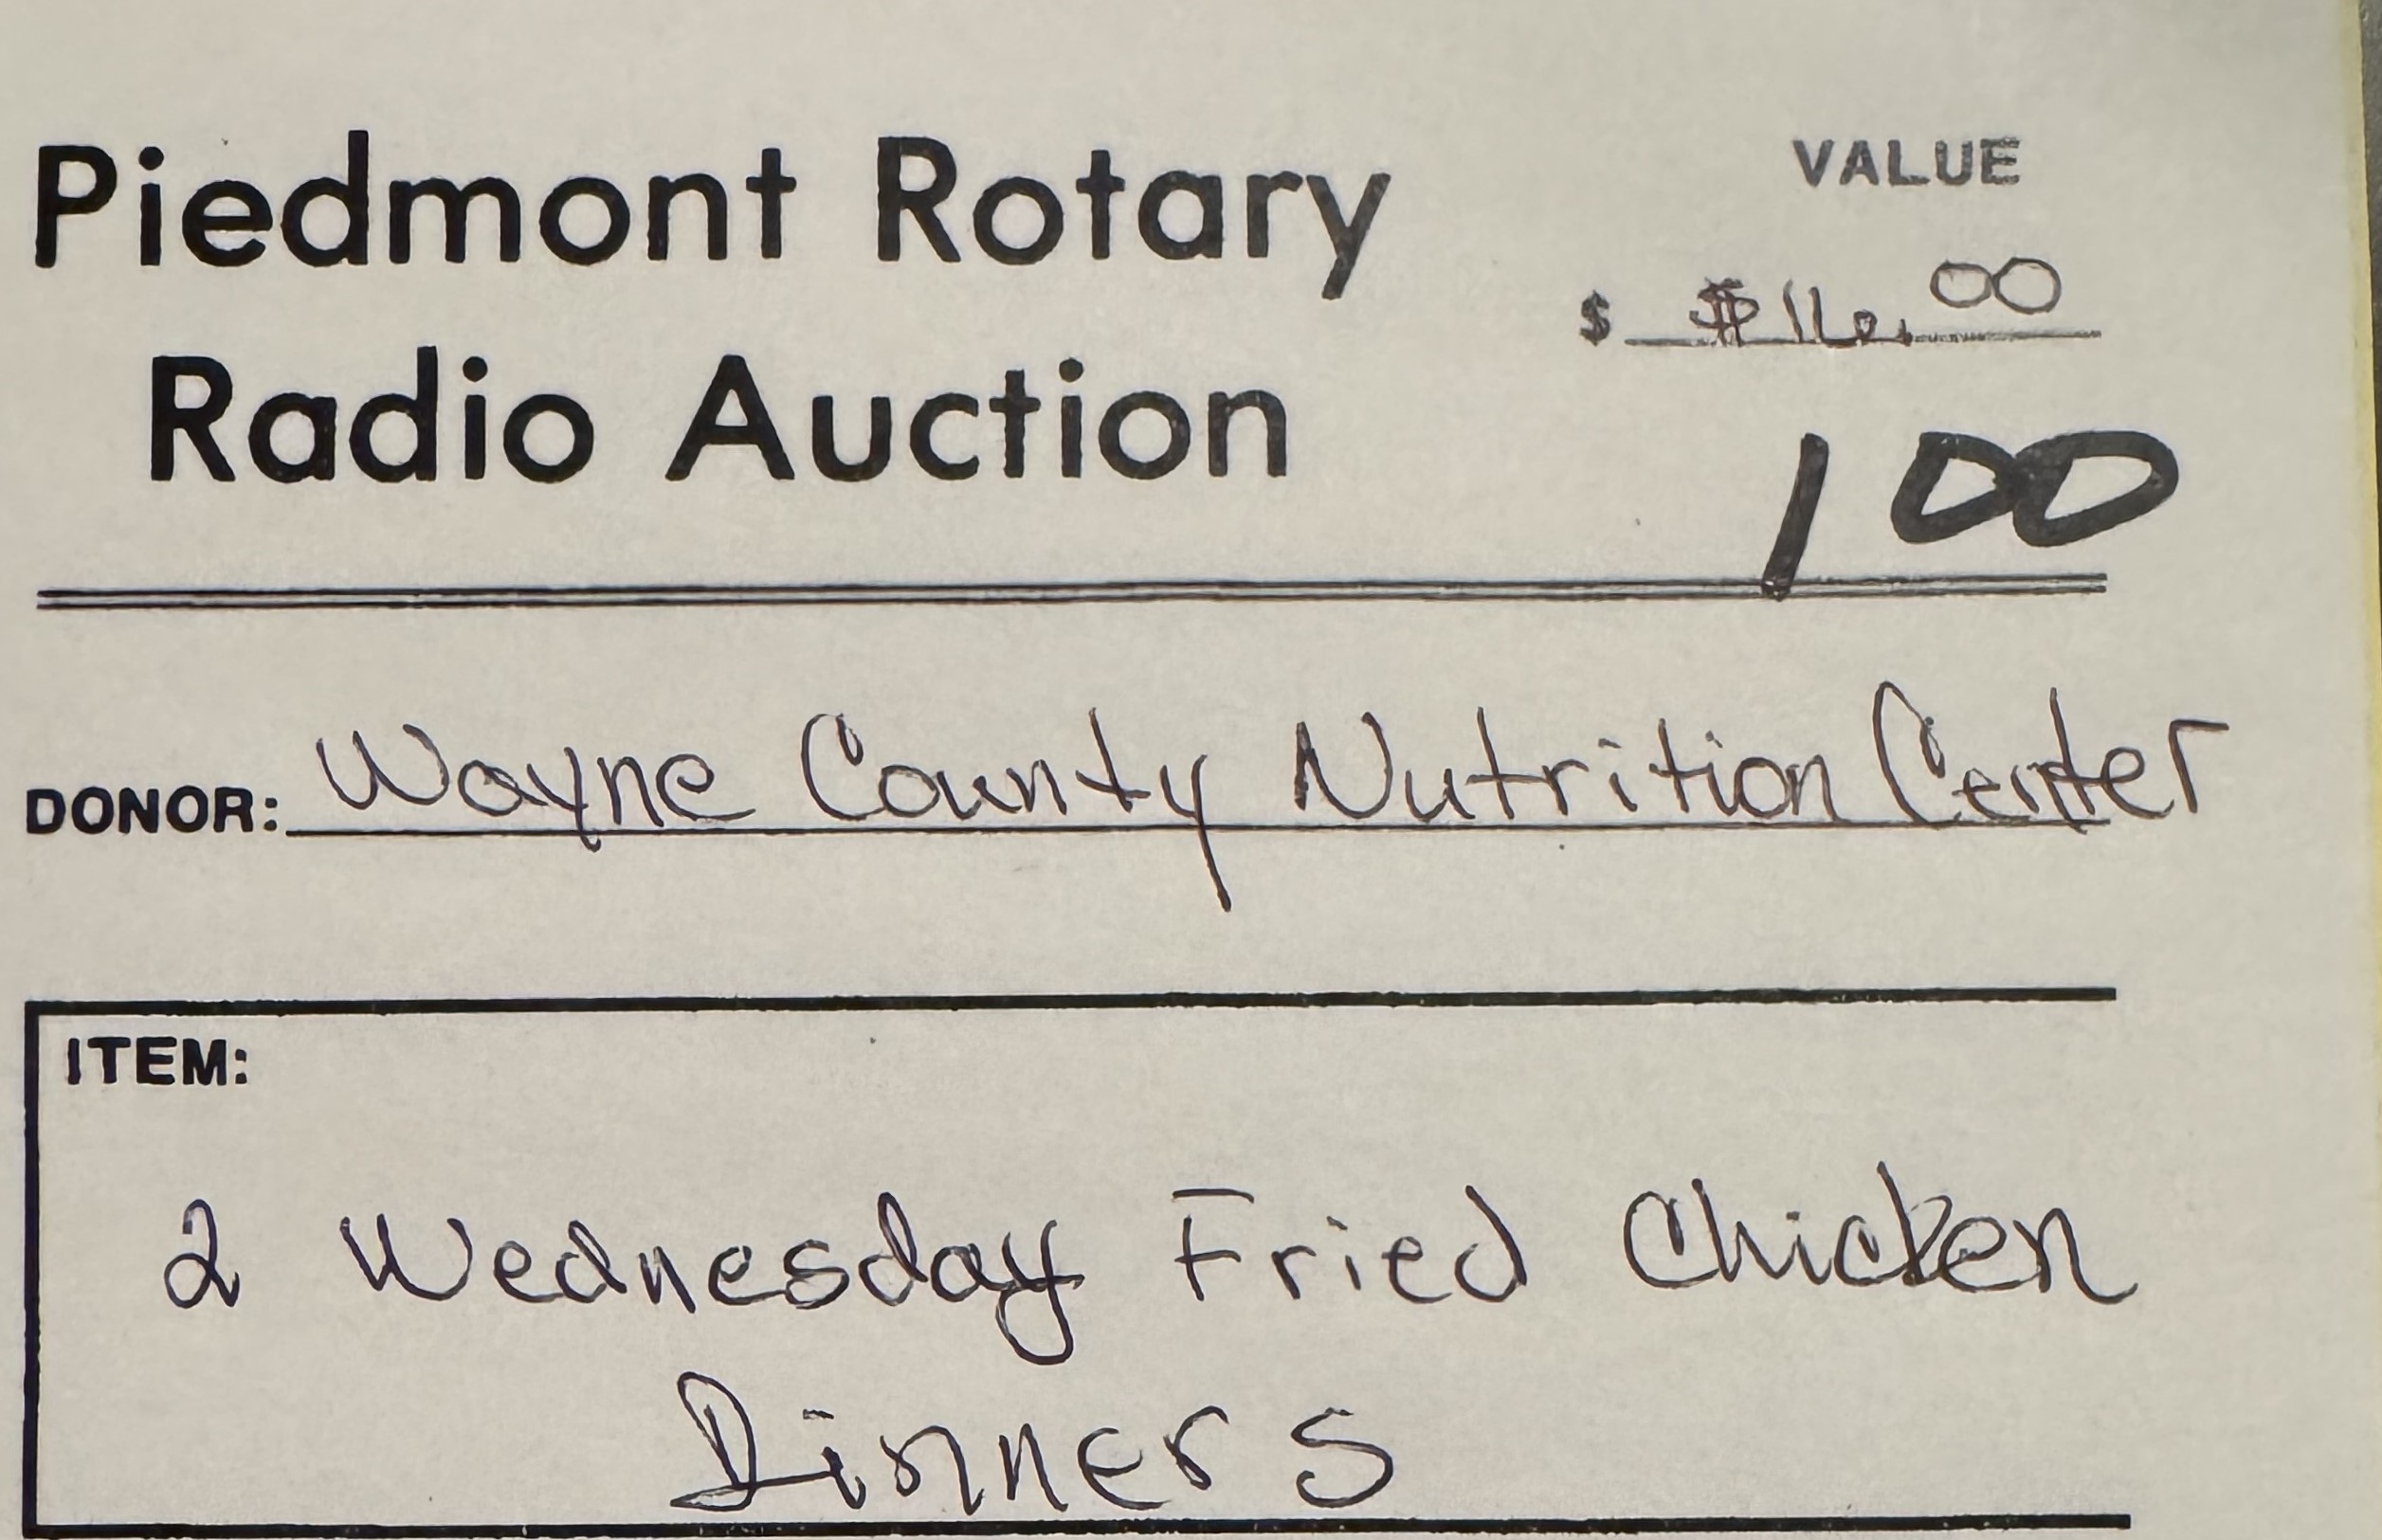 Piedmont Rotary
Radio Auction
VALUE
$ $16.00
100
DONOR: Wayne County Nutrition Center
ITEM:
2 Wednesday Fried Chicken
Dinners